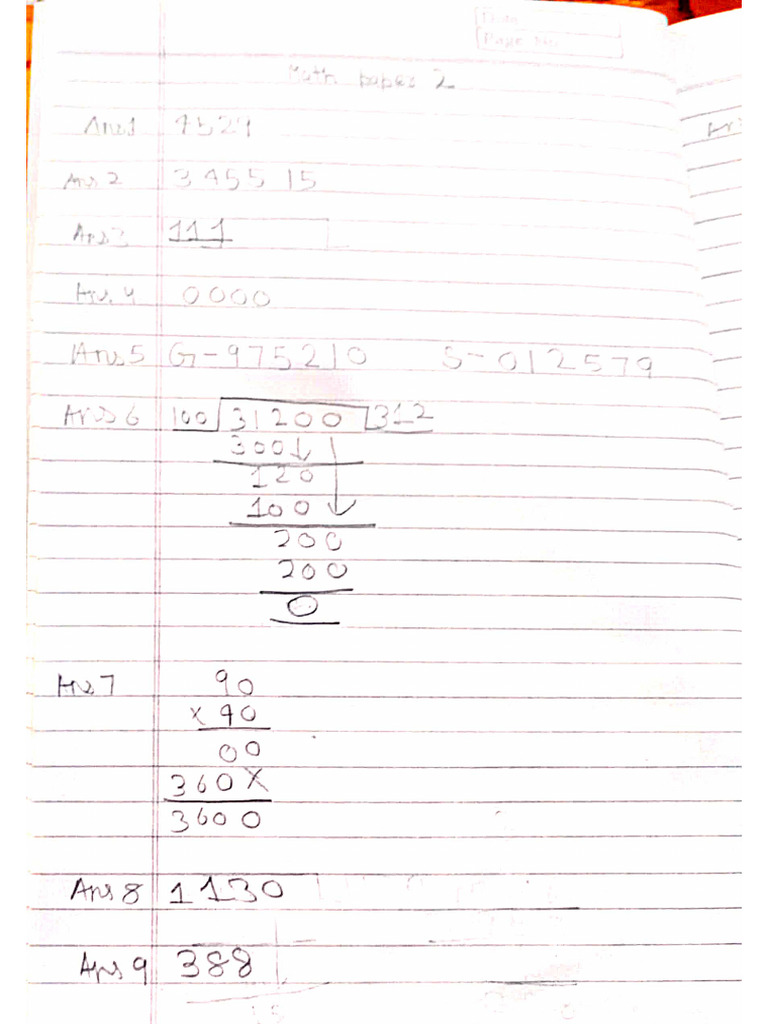 Page No.
Math paper 2
Ans 1 4524
Ans 2 345515
Ans 3 111
Ans 4 0000
Ans 5 G-975210 S-012579
Ans 6 100 31200 312
300
120
100
200
200
0
Ans 7 90
x 40
00
360X
3600
Ans 8 1130
Ans 9 388